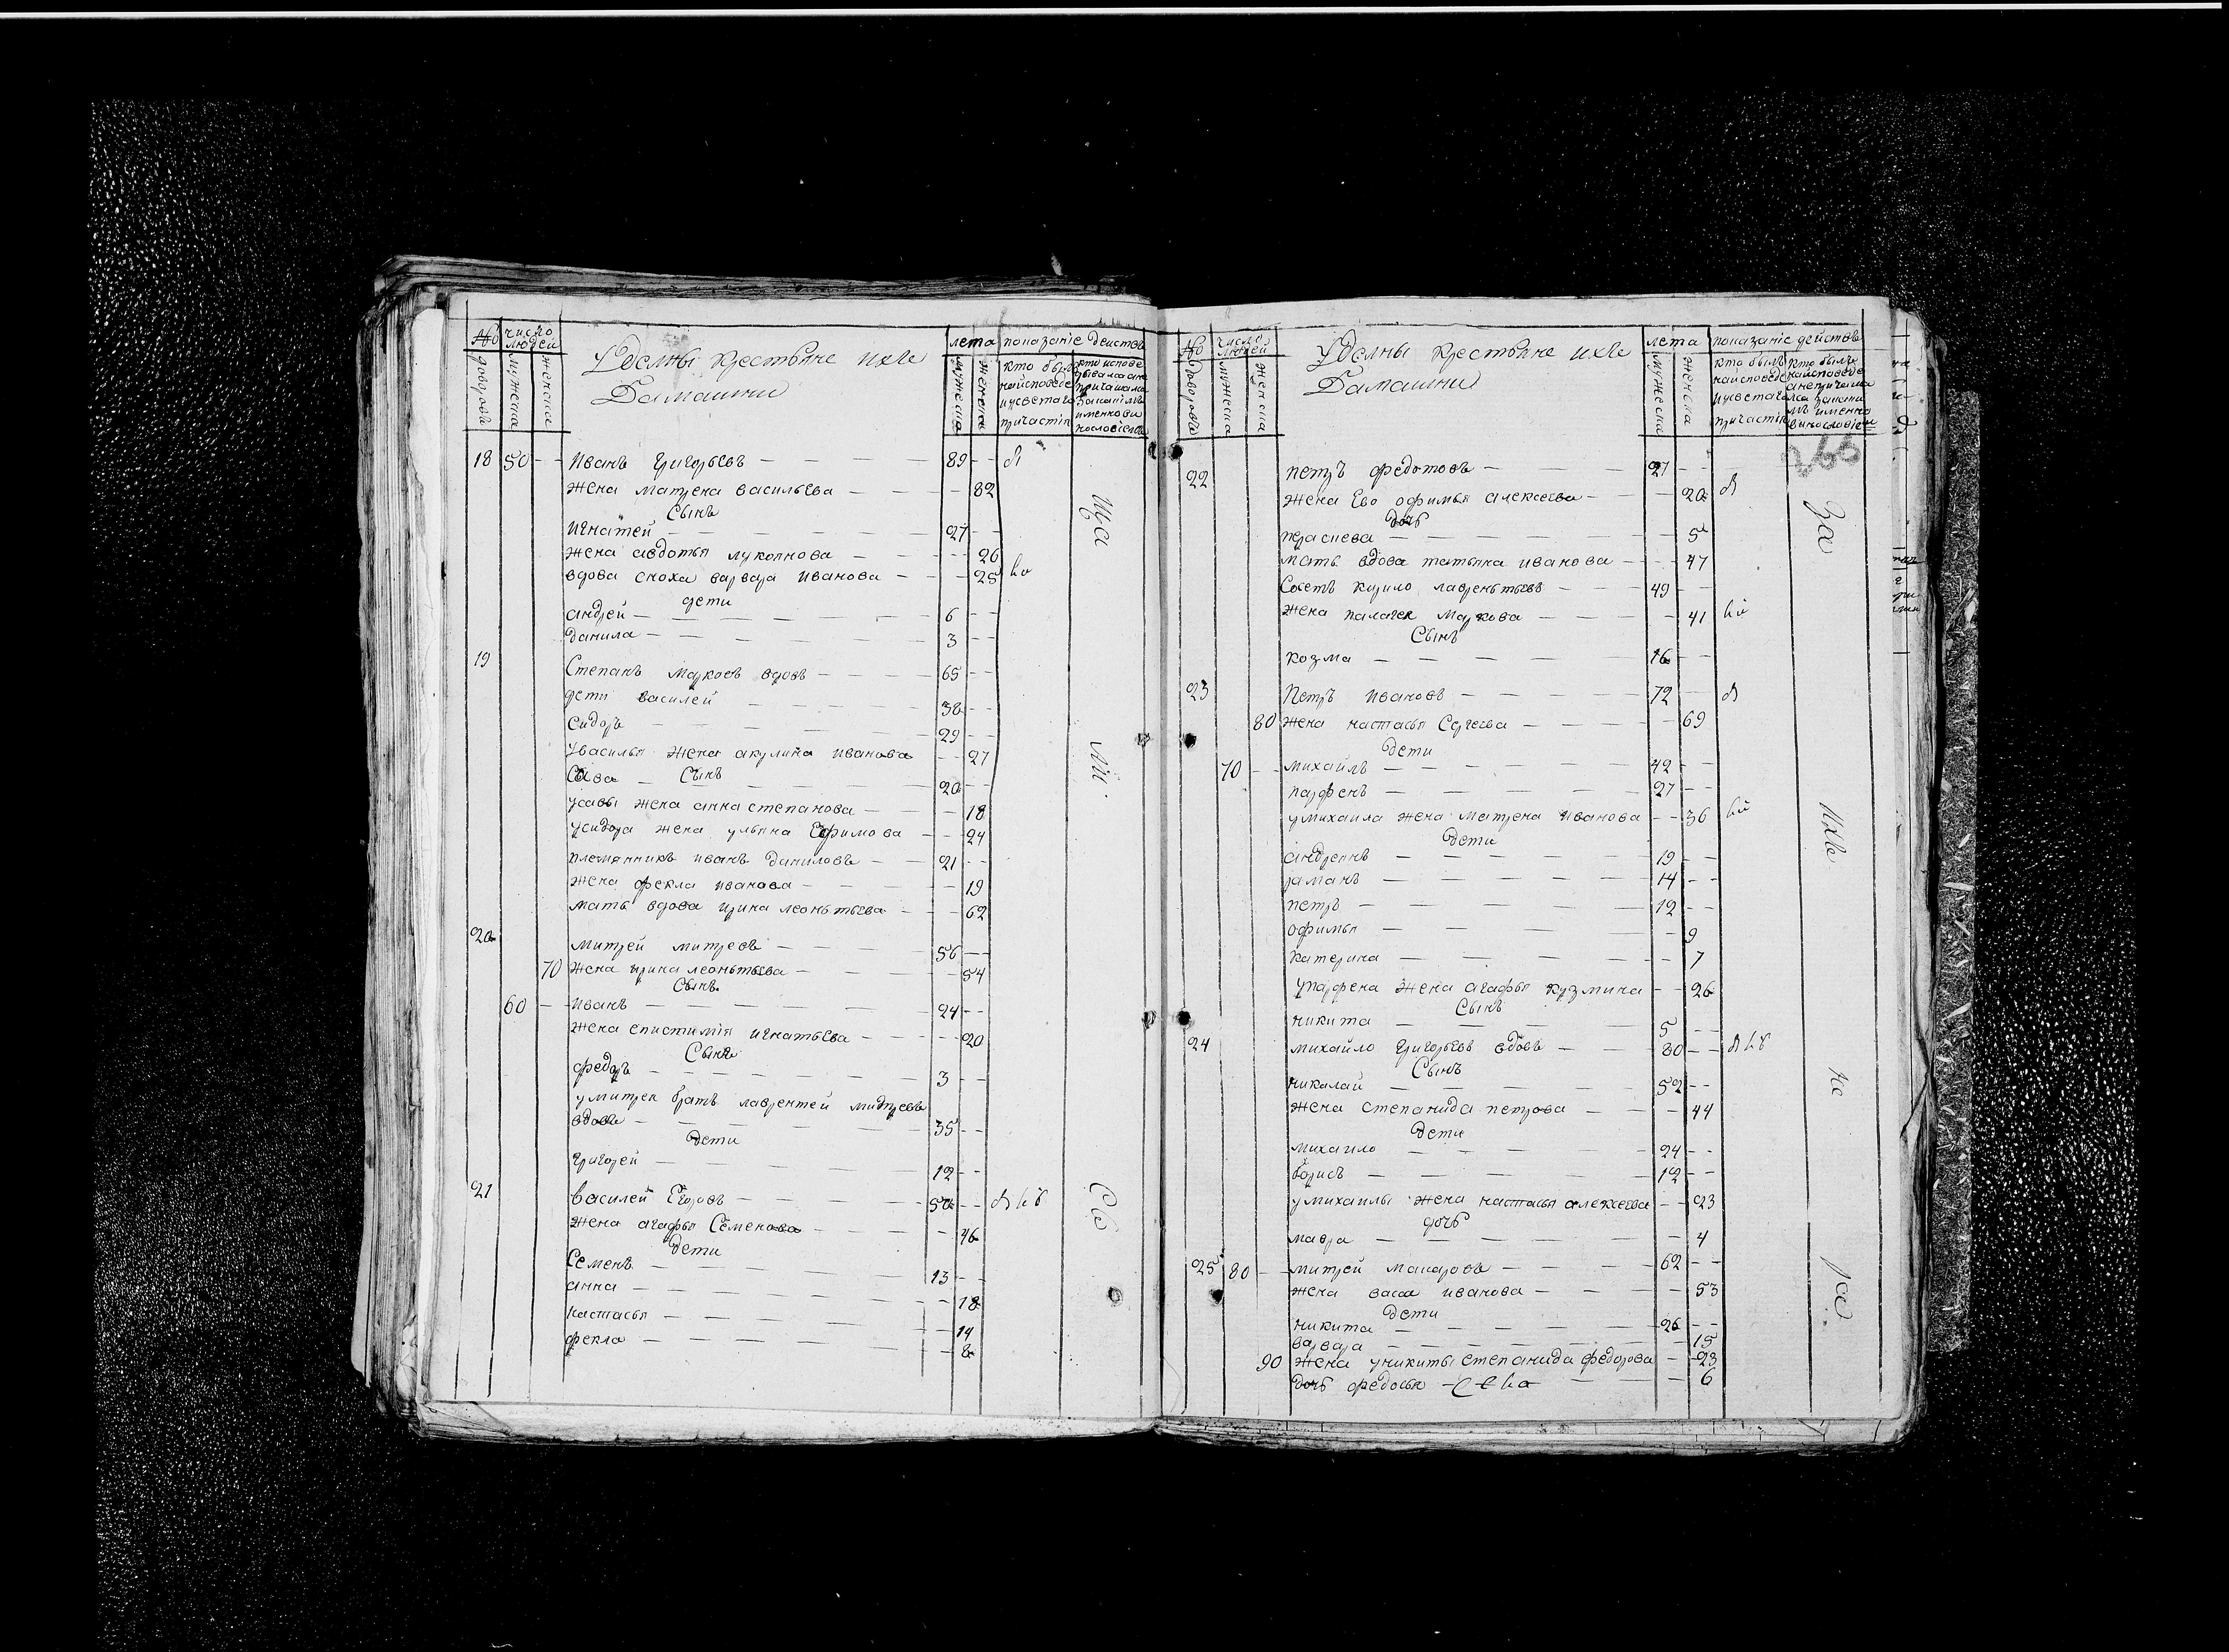 № число людей лета показаніе действъ
дворовъ мужеска женска мужеска женска
Уделны крестьяне ихъ
Дамашни
18 50 - - Иванъ Григорьевъ 89 - -
жена матрена васильева 82
Сынъ
Игнатей 27 - -
жена авдотья лукоянова 26
вдова сноха варвара иванова 25
дети
андрей 6 - -
данила 3 - -
19 Степанъ марковъ вдовъ 65 - -
дети василей 38 - -
Сидоръ 29 - -
увасилья жена акулина иванова - - 27
Сава Сынъ 20 - -
усавы жена анна степанова 18
усидора жена ульяна Ефимова - - 24
племянникъ иванъ даниловъ 21 - -
жена фекла иванова 19
мать вдова ирина леонтьева 62
20 митрей митреевъ 56 - -
70 жена ирина леонтьева 54
Сынъ
60 - - иванъ 24 - -
жена епистимія игнатьева 20
Сынъ
федоръ 3 - -
умитрея братъ лаврентей митреевъ
вдовъ 35 - -
дети
Григорей 12 - -
21 василей Егоровъ 50 - -
жена агафья Семенова 46
дети
Семенъ 13 - -
анна 18
настасья 14
фекла 8
Ща
ли
№ число людей лета показаніе действъ
дворовъ мужеска женска мужеска женска
Уделны крестьяне ихъ
Дамашни
266
22 петръ федотовъ 27 - -
жена Ево офимья алексеева 20
дочь
праскева 5
мать вдова татьяна иванова 47
Соседъ кирило лаврентьевъ 49 - -
жена палагея маркова 41
Сынъ
козма 16 - -
23 Петръ ивановъ 72 - -
80 жена настасья Сергеева 69
дети
70 - - михайлъ 42 - -
парфенъ 27 - -
умихаила жена матрена иванова - - 36
дети
андреянъ 19 - -
раманъ 14 - -
петръ 12 - -
офимья 9
катерина 7
упарфена жена агафья кузмина - - 26
Сынъ
никита 5 - -
24 михайло Григорьевъ вдовъ 80 - -
Сынъ
николай 52 - -
жена степанида петрова 44
дети
михаило 24 - -
борисъ 12 - -
умихаилы жена настасья алексеева 23
дочь
мавра 4
25 80 - - митрей макаровъ 62 - -
жена васа иванова 53
дети
никита 26 - -
варвара 15
90 жена уникиты степанида федорова 23
дочь федосья 6
За
Ихъ
не